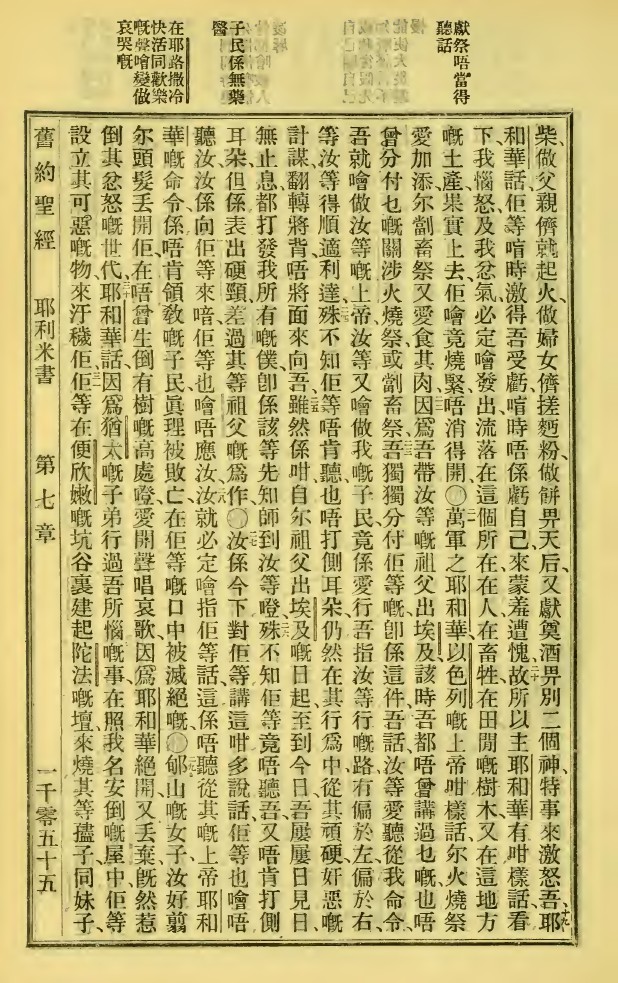 獻祭唔當得
聽話
子民係無藥
醫
在耶路撒冷
快活同歡樂
嘅聲噲變做
哀哭嘅
柴、做父親儕就起火、做婦女儕搓麪粉、做餅畀天后、又獻奠酒畀別二個神、特事來激怒吾、耶
十九
和華話、佢等啃時激得吾受虧、啃時唔係虧自己、來蒙羞遭愧、故所以主耶和華有咁樣話、看
二十
下、我惱怒及我忿氣必定噲發出流落在這個所在、在人、在畜牲、在田閒嘅樹木、又在這地方
嘅土產果實上去、佢噲竟燒緊、唔消得開、〇萬軍之耶和華以色列嘅上帝咁樣話、尔火燒祭
二一
愛加添尔劏畜祭、又愛食其肉、因爲吾帶汝等嘅祖父出埃及該時、吾都唔曾講過乜嘅、也唔
二二
曾分付乜嘅關涉火燒祭或劏畜祭、吾獨獨分付佢等嘅、卽係這件、吾話、汝等愛聽從我命令、
二三
吾就噲做汝等嘅上帝、汝等又噲做我嘅子民、竟係愛行吾指汝等行嘅路、有偏於左偏於右、
等汝等得順適利達、殊不知佢等唔肯聽、也唔打側耳朵、仍然在其行爲中、從其頑硬奸惡嘅
二四
計謀、翻轉將背唔將面來向吾、雖然係咁、自尔祖父出埃及嘅日起、至到今日、吾屢屢日見日
二五
無止息、都打發我所有嘅僕、卽係該等先知師、到汝等嶝、殊不知佢等竟唔聽吾、又唔肯打側
二六
耳朵、但係表出硬頸、差過其等祖父嘅爲作、〇汝係今下對佢等講這咁多說話、佢等也噲唔
二七
聽汝、汝係向佢等來喑、佢等也噲唔應汝、汝就必定噲指佢等話、這係唔聽從其嘅上帝耶和
二八
華嘅命令、係唔肯領敎嘅子民、眞理被敗亡、在佢等嘅口中被滅絕嘅、〇郇山嘅女子、汝好翦
二九
尔頭髮丟開佢、在唔曾生倒有樹嘅高處嶝、愛開聲唱哀歌、因爲耶和華絕開又丟棄旣然惹
倒其忿怒嘅世代、耶和華話、因爲猶太嘅子弟、行過吾所惱嘅事、在照我名安倒嘅屋中、佢等
三十
設立其可惡嘅物來汙穢佢、佢等在便欣嫩嘅坑谷裏、建起陀法嘅壇、來燒其等孻子同妹子、
三一
舊約聖經　耶利米書　第七章　一千零五十五